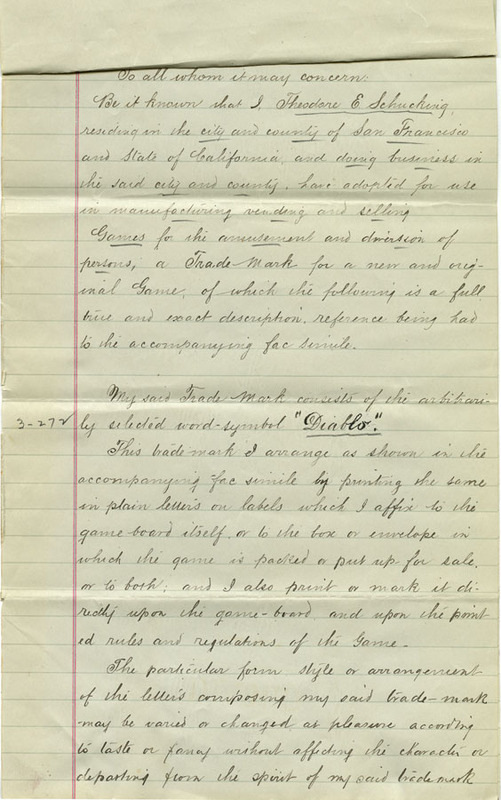 To all whom it may concern:
Be it known that I, Theodore E Schucking,
residing in the city and county of San Francisco
and State of California, and doing business in
the said city and county, have adopted for use
in manufacturing vending and selling
Games for the amusement and diversion of
persons, a Trade Mark for a new and orig-
inal Game, of which the following is a full
true and exact description, reference being had
to the accompanying fac simile.
My said Trade Mark consists of the arbitrari-
3-272 ly selected word-symbol "Diablo".
This trademark I arrange as shown in the
accompanying fac simile by printing the same
in plain letters on labels which I affix to the
game-board itself, or to the box or envelope in
which the game is packed or put up for sale,
or to both; and I also print or mark it di-
rectly upon the game-board and upon the print-
ed rules and regulations of the Game.
The particular form style or arrangement
of the letters composing my said trade-mark
may be varied or changed at pleasure according
to taste or fancy without affecting the character or
departing from the spirit of my said trade mark